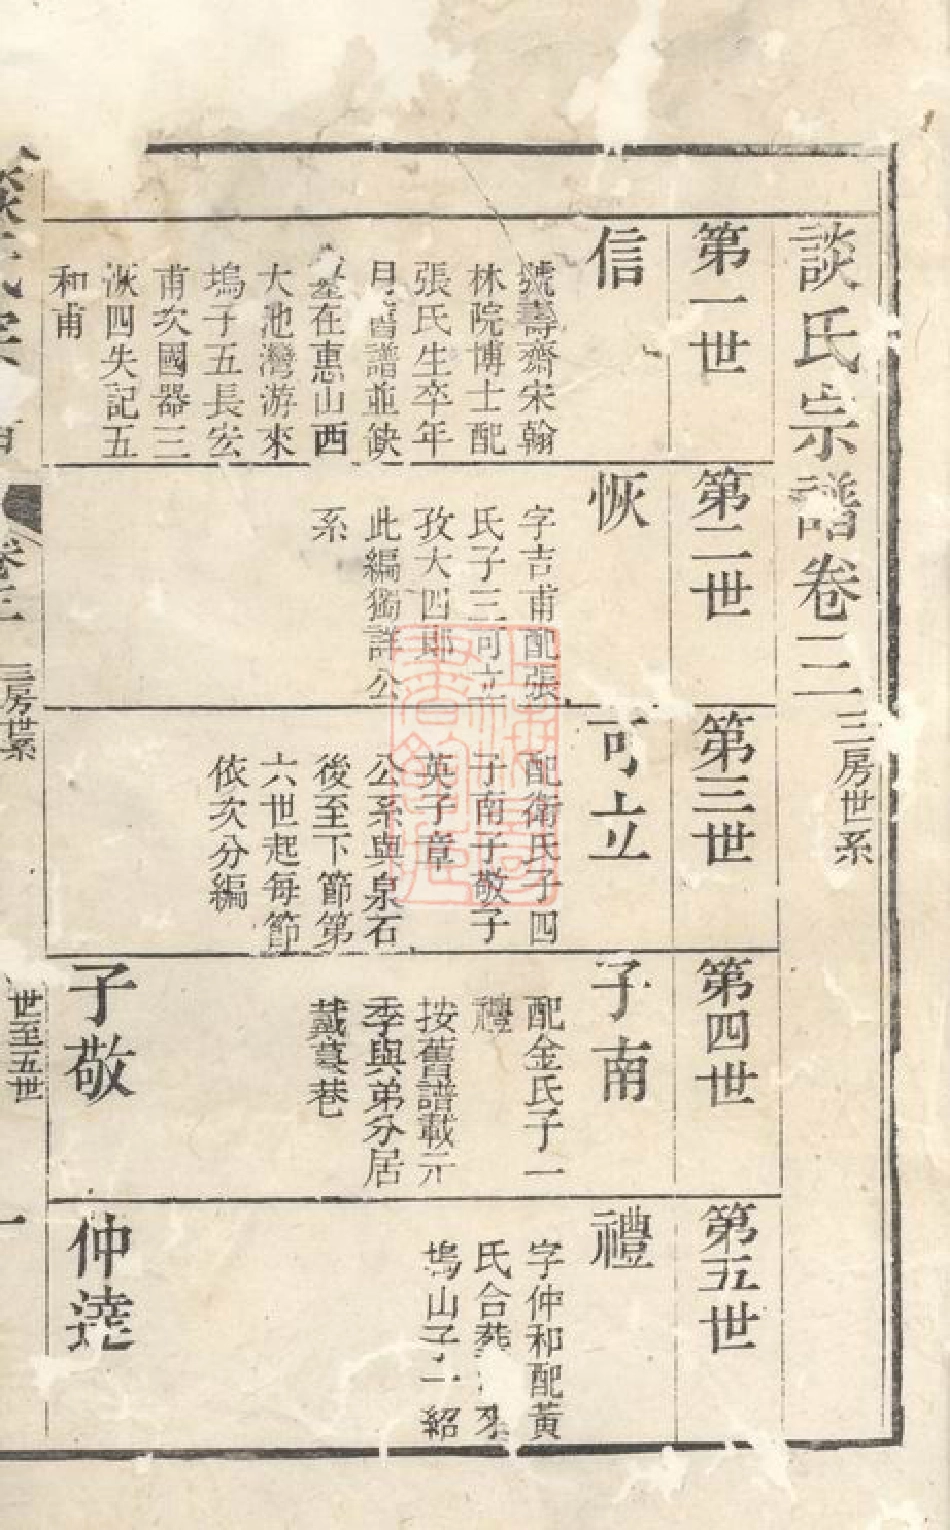 談氏宗譜卷三
三房世系
第一世
信
號壽齋宋翰
林院博士配
張氏生卒年
月舊譜並缺
墓在惠山西
大池灣游來
塢子五長宏
甫次國器三
恢四失記五
和甫
第二世
恢
字吉甫配張
氏子三可立
孜大四郎
此編獨詳公
系
第三世
可立
配衛氏子四
子南子敬子
英子章
公系與泉石
後至下節第
六世起每節
依次分編
第四世
子南
配金氏子一
禮
按舊譜載元
季與弟分居
戴墓巷
子敬
第五世
禮
字仲和配黃
氏合葬 來
塢山子二 紹
仲澆
氏宗
卷三
三房世系
世至五世
一